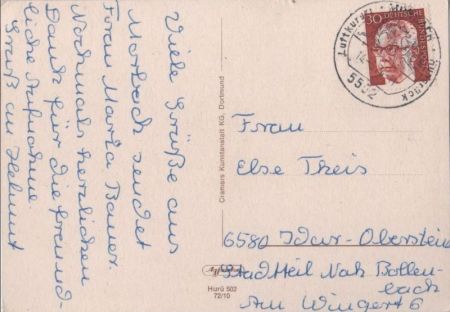 Viele Grüße aus
Morbach sendet
Frau Maria Bauer.
Nochmals herzlichen
Dank für die freund-
liche Aufnahme.
Gruß an Helmut
Cramers Kunstanstalt KG, Dortmund
Hurü 502
72/10
30 DEUTSCHE
BUNDESPOST
Luftkurort
5552
Frau
Else Theis
6580 Idar-Oberstein
Stadtteil Nah Bollen-
bach
Am Wingert 6